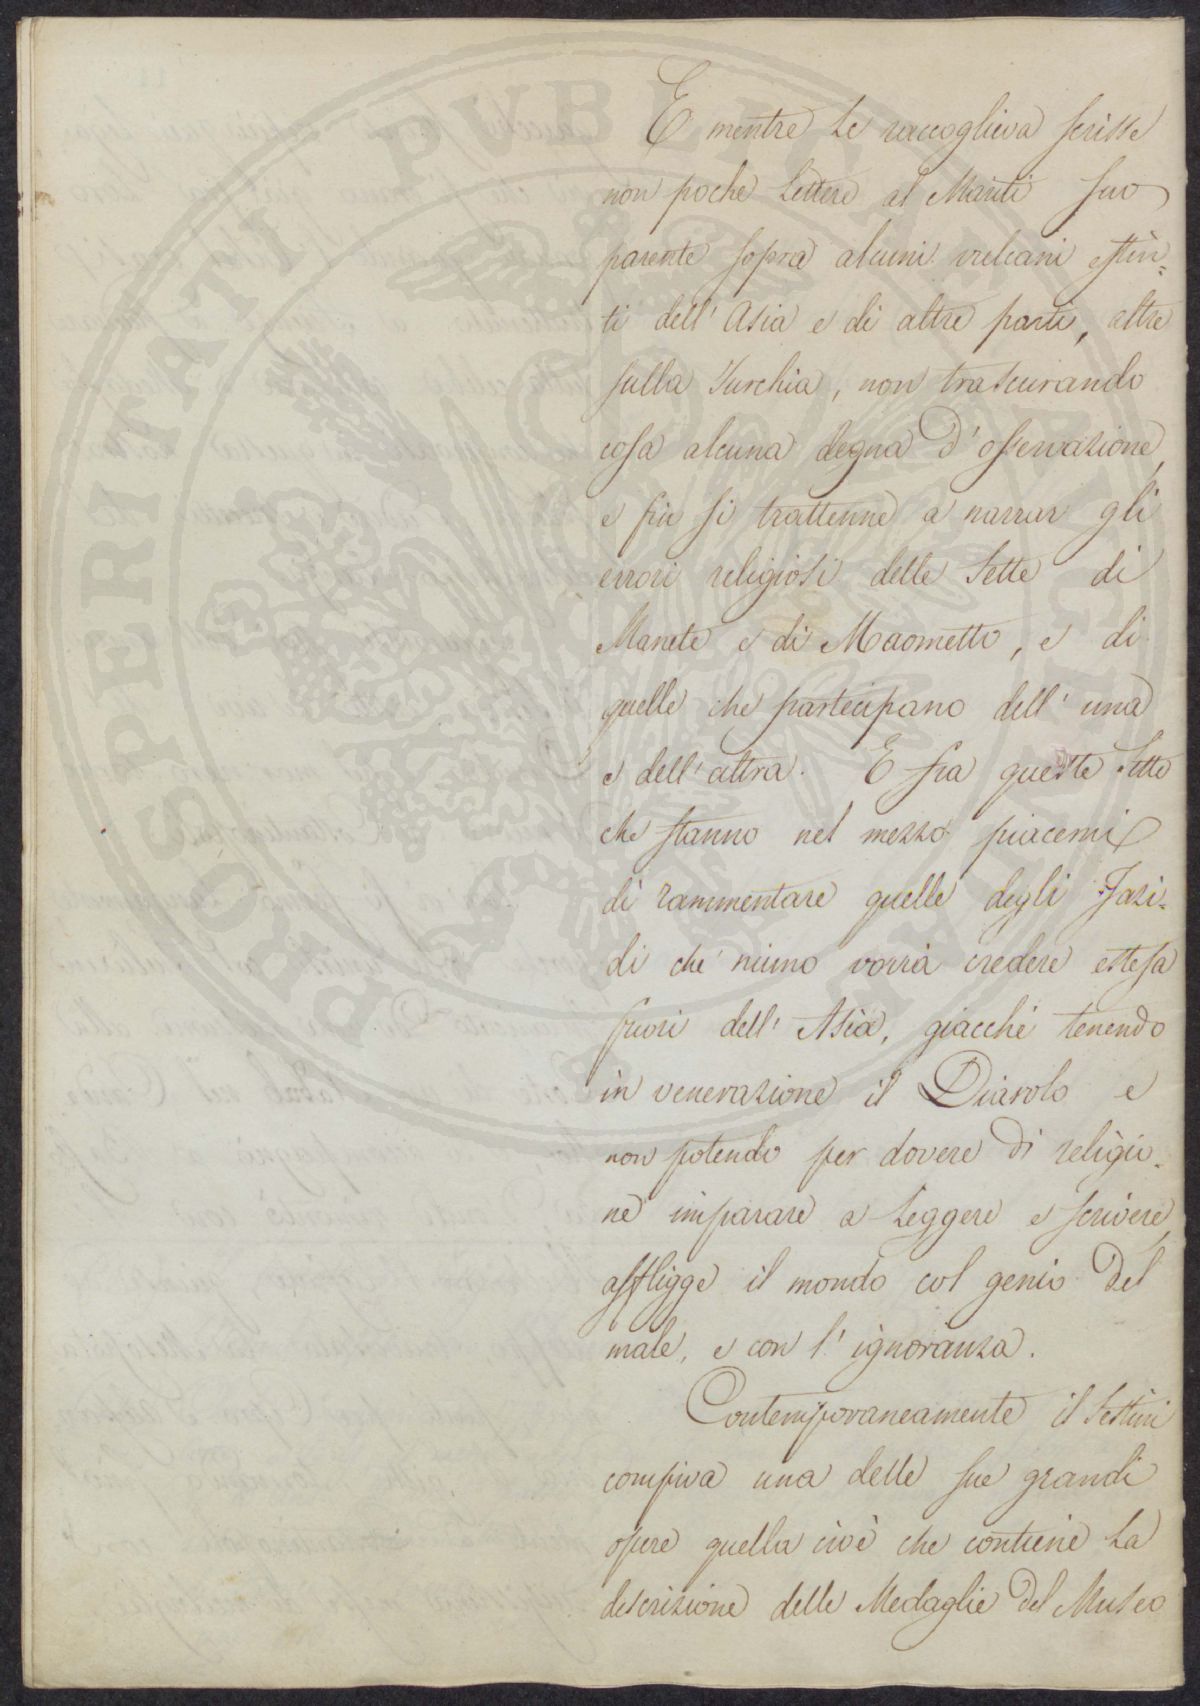 E mentre le raccoglieva scrisse
non poche Lettere al Mariti suo
parente sopra alcuni vulcani estin-
ti dell'Asia e di altre parti, altre
sulla Turchia, non trascurando
cosa alcuna degna d'osservazione,
e più si trattenne a narrar gli
errori religiosi delle Sette di
Manete e di Maometto, e di
quelle che partecipano dell'una
e dell'altra. E fra queste Sette
che stanno nel mezzo piacemi
di rammentare quelle degli Jazi-
di che niuno vorrà credere estesa
fuori dell'Asia, giacchè tenendo
in venerazione il Diavolo e
non potendo per dovere di religio-
ne imparare a leggere e scrivere,
affligge il mondo col genio del
male, e con l'ignoranza.
Contemporaneamente il Sestini
compiva una delle sue grandi
opere quella cioè che contiene la
descrizione delle Medaglie del Museo
PROSPERITATI PVBLICAE